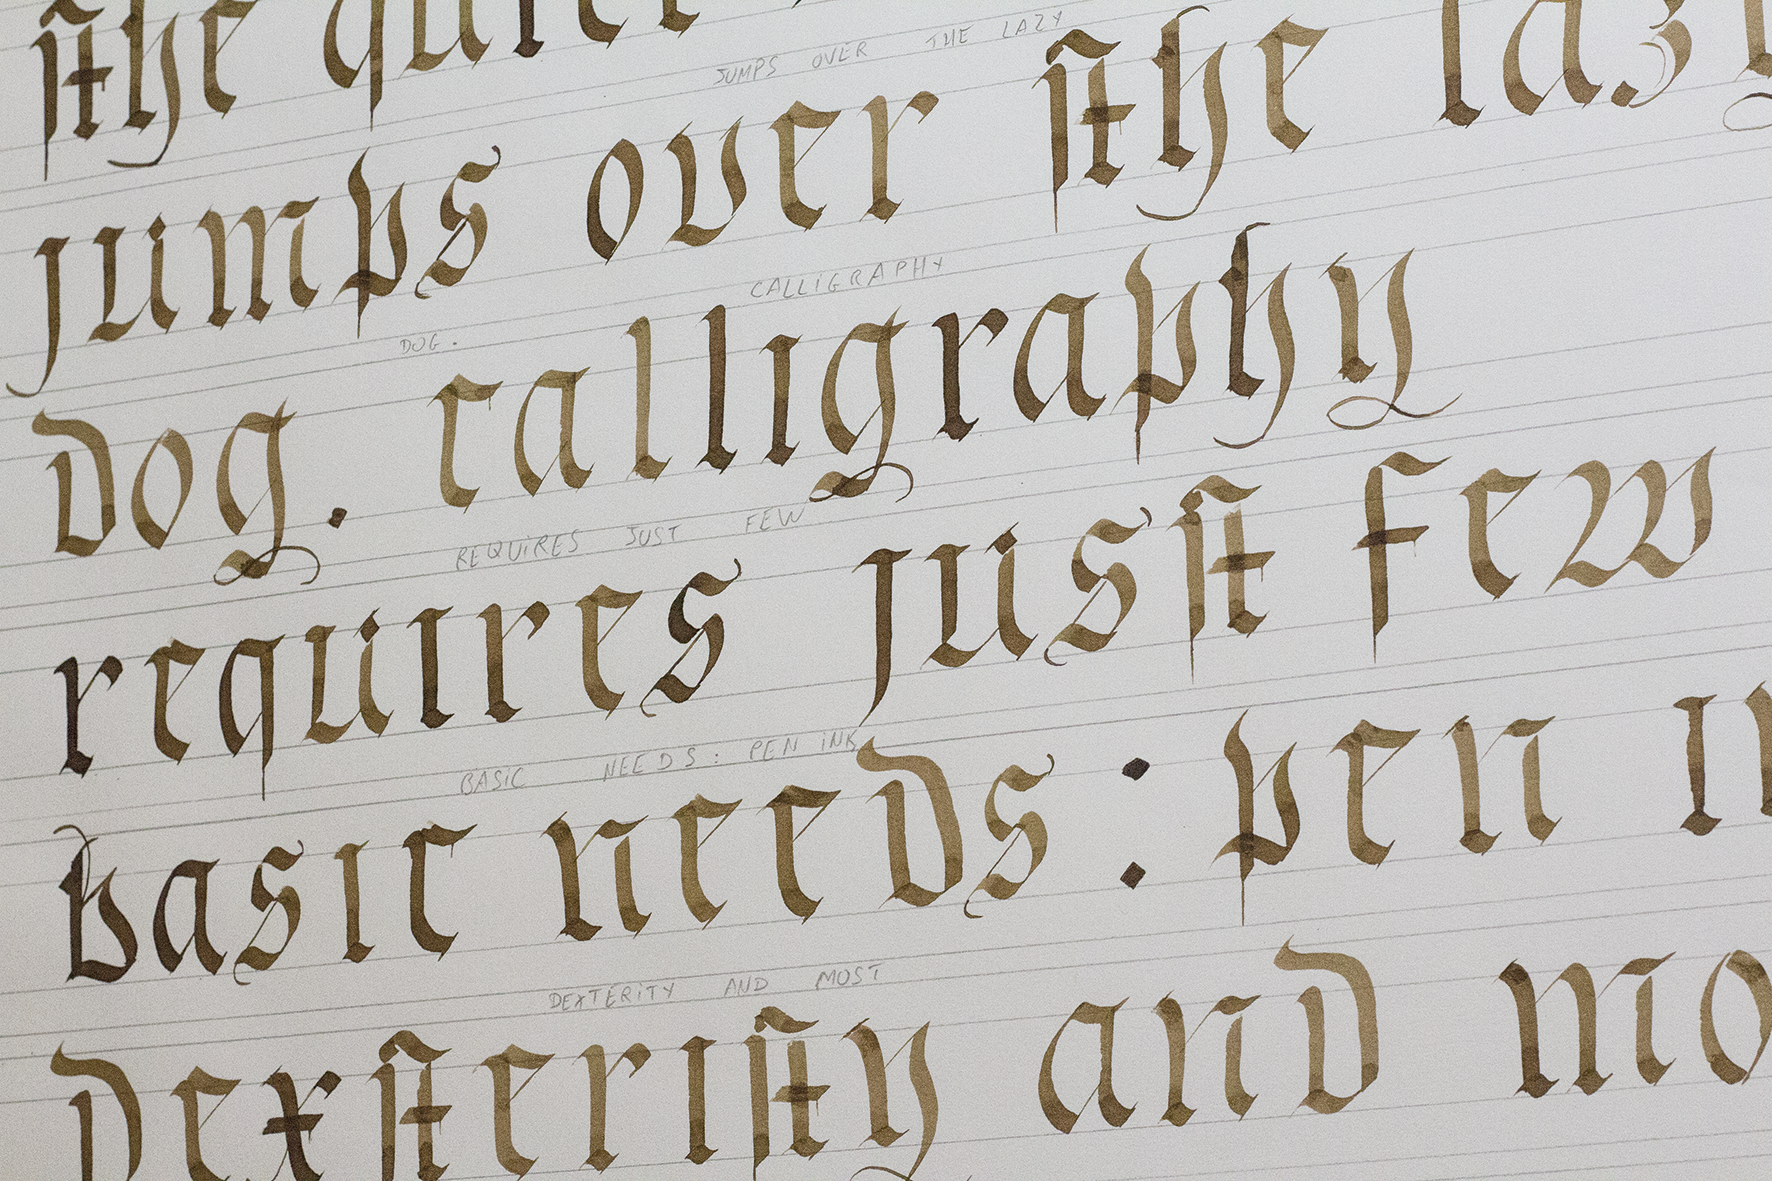 the quic
JUMPS OVER THE LAZY
jumps over the lazy
DOG. CALLIGRAPHY
dog. calligraphy
REQUIRES JUST FEW
requires just few
BASIC NEEDS: PEN INK
basic needs: pen in
DEXTERITY AND MOST
dexterity and mo